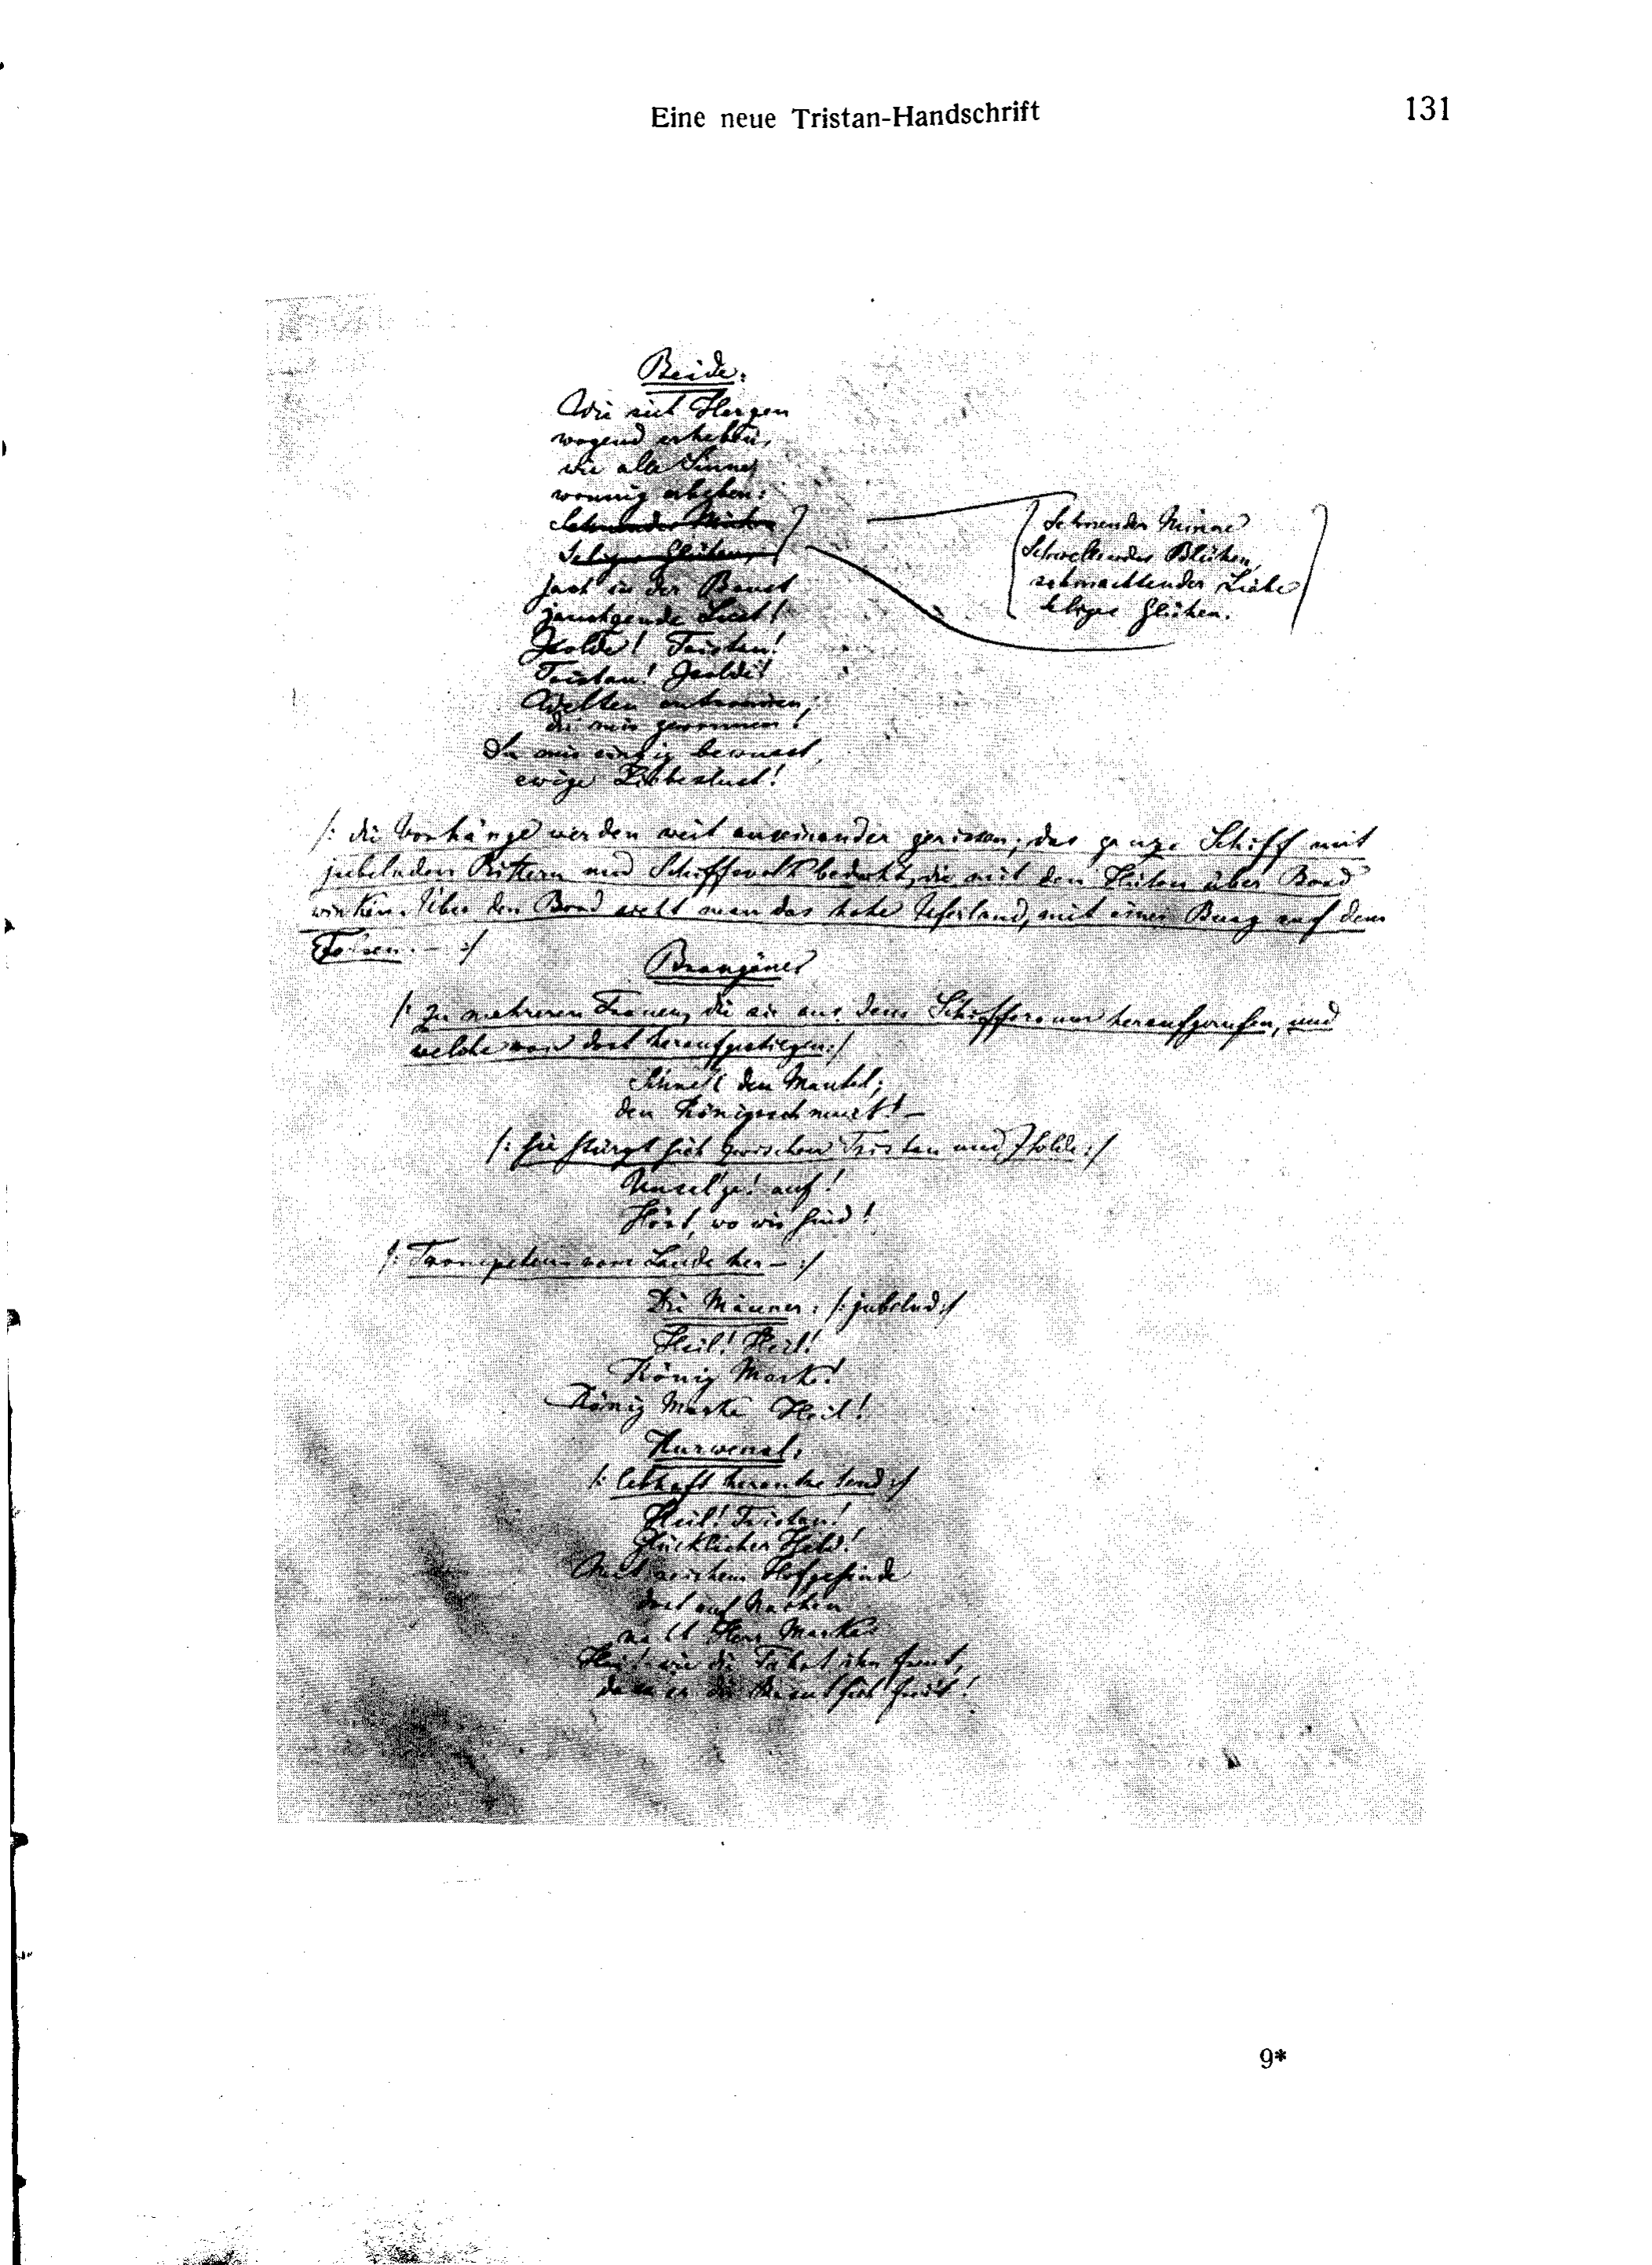 Eine neue Tristan-Handschrift
131
Beide:
Wie sich Herzen
wogend erheben,
wie alle Sinne
wonnig erbeben:
Sehnender Minne
schwellendes Blühen,
schmachtender Liebe
sel'ges Glühen.
Jach in der Brust
jauchzende Lust!
Isolde! Tristan!
Tristan! Isolde!
Welten entronnen,
du mir gewonnen!
Du mir einzig bewusst,
ewige Liebeslust!
/: die Vorhänge werden weit auseinander gerissen; das ganze Schiff mit
jubelnden Rittern und Schiffsvolk bedeckt, die mit den Hüten über Bord
winken. Über den Bord sieht man das hohe Uferland, mit einer Burg auf dem
Felsen. — :/
Brangäne
/: zu mehreren Frauen, die sie aus dem Schiffsraum heraufgerufen, und
welche von dort heraufgestiegen :/
Schnell den Mantel;
den Königsschmuck! —
/: sie stürzt sich zwischen Tristan und Isolde :/
Unsel'ge! auf!
Hört, wo wir sind!
/: Trompeten vom Lande her — :/
Die Männer: /: jubelnd :/
Heil! Heil!
König Marke!
König Marke Heil!
Kurwenal:
/: lebhaft herantretend :/
Heil! Tristan!
Glücklicher Held!
Mit reichem Hofgesinde
dort auf Nachen
naht Herr Marke
Hei! wie die Fahrt ihn freut,
dass er die Braut sich freit!
9*